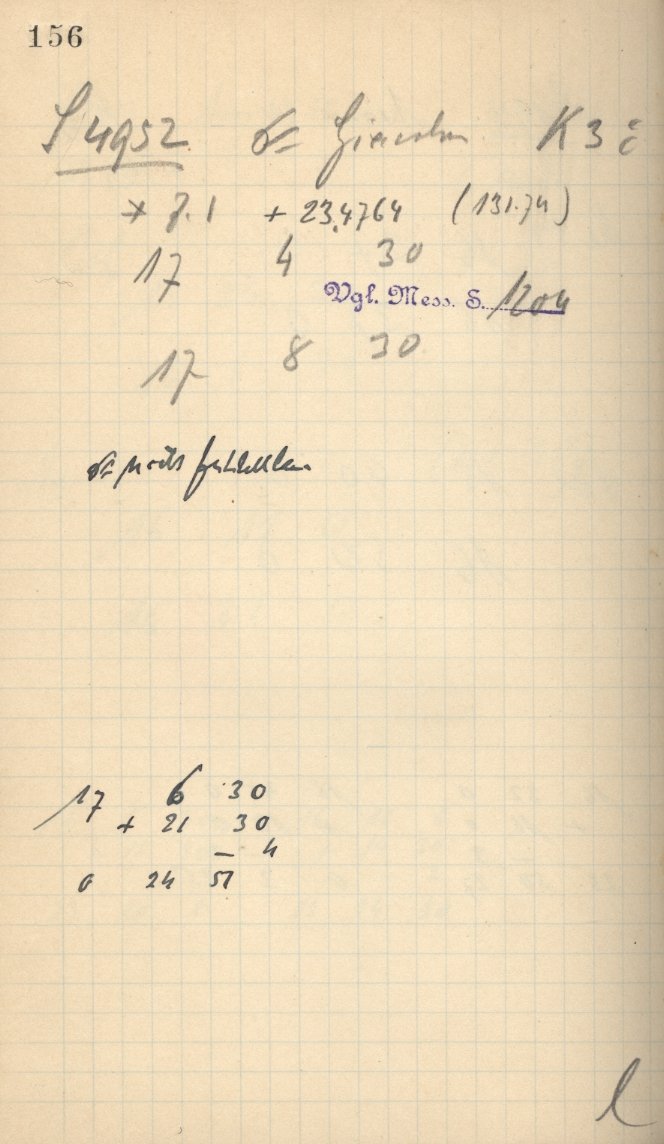 156
S 4952 Giacobini K3
* 7.1 + 23.4764 (131.74)
17 4 30
Vgl. Mess. S. 1204
17 8 30
nicht
17 6 30
+ 21 30
– 4
0 24 51
l